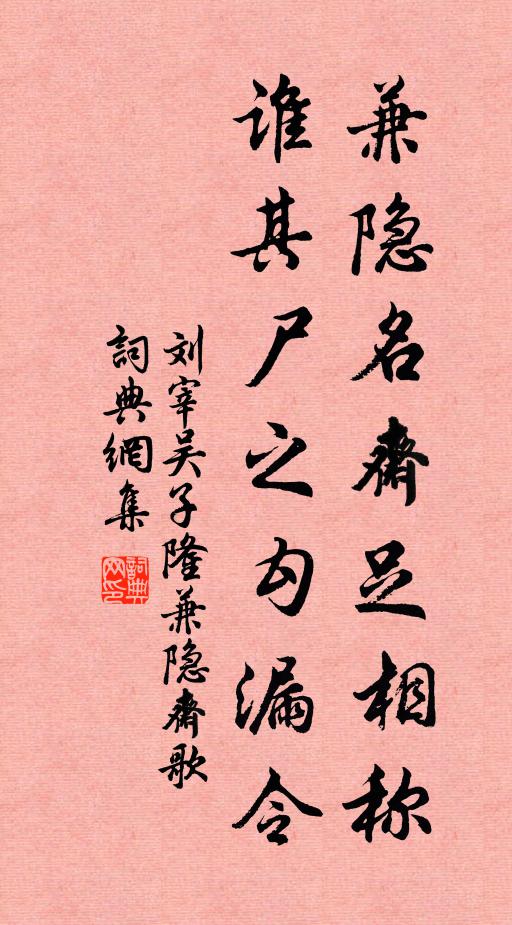 兼隐名齋足相称
谁其尸之勾漏令
刘宰吴子隆兼隐齋歌
詞典網集
詞典网印